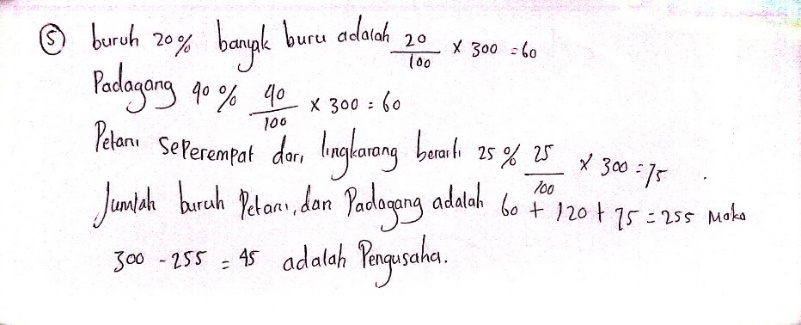 ⑤ buruh 20% banyak buru adalah 20/100 × 300 = 60
Padagang 40% 40/100 × 300 = 60
Petani seperempat dari lingkarang berarti 25% 25/100 × 300 = 75
Jumlah buruh petani, dan Padagang adalah 60 + 120 + 75 = 255 Maka
300 - 255 = 45 adalah Pengusaha.